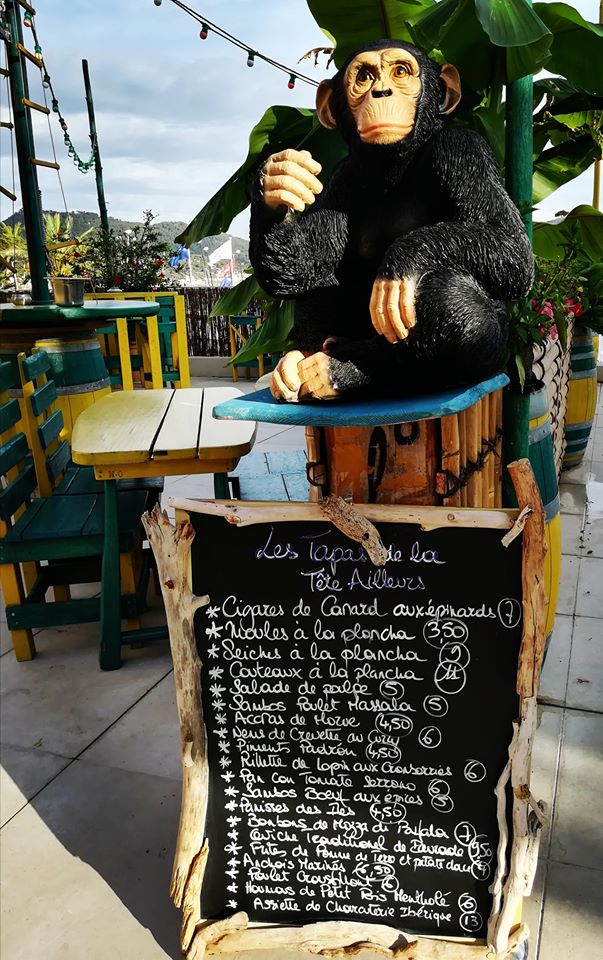 Les Tapas de la
Tête Ailleurs
* Cigares de Canard aux épinards 7
* Moules à la plancha 3,50
* Seiche à la plancha 9
* Couteaux à la plancha 11
* Salade de poulpe 5
* Sambos Poulet Massala 5
* Accras de Morue 4,50
* Nems de Crevette au Curry 6
* Piments Padrón 4,50
* Rillette de lapin aux Cranberries 6
* Pan con Tomate Serrano 6
* Sambos Boeuf aux épices 5
* Panisses des Iles 4,50
* Bonbons de Mozza di Buffala 7
* Ceviche Traditionnel de Daurade 9,50
* Frites de Pomme de Terre et patate douce 4
* Anchois Marinés 6,50
* Poulet Croustillant 6
* Houmous de Petit Pois Mentholé 6
* Assiette de Charcuterie Ibérique 13